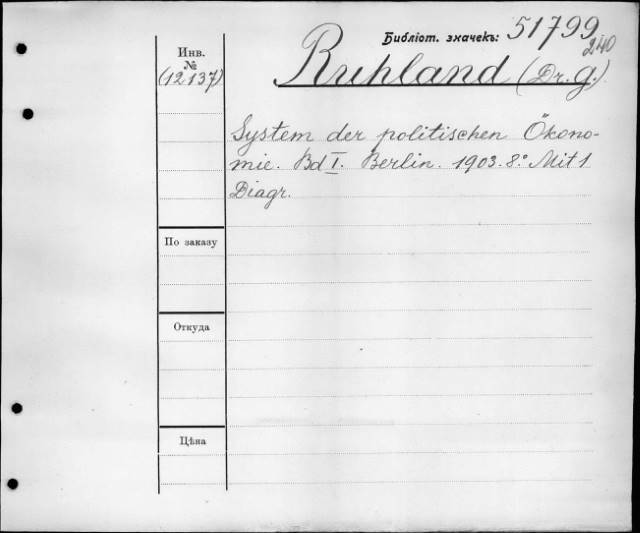 Библіот. значекъ: 51799
240
Инв.
№
(12137)
Ruhland (Dr. G.)
System der politischen Ökono-
mie. Bd I. Berlin. 1903. 8.° Mit 1
Diagr.
По заказу
Откуда
Цѣна